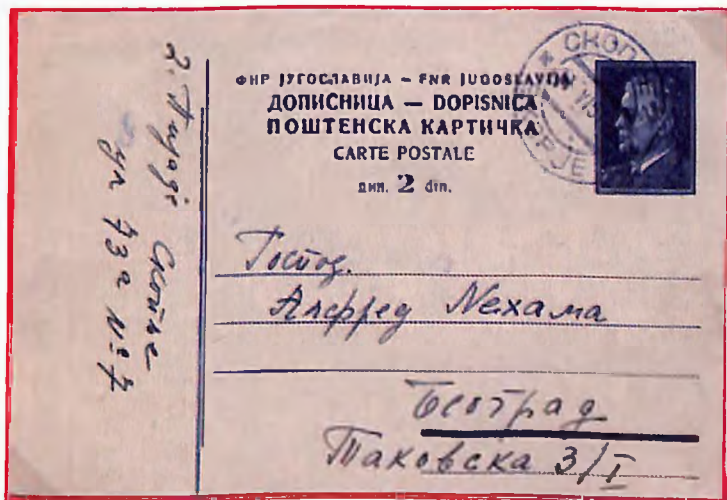 ФНР ЈУГОСЛАВИЈА – FNR JUGOSLAVIJA
ДОПИСНИЦА — DOPISNICA
ПОШТЕНСКА КАРТИЧКА
CARTE POSTALE
дин. 2 din.
Господ.
Алфред Нехама
Београд
Таковска 3/I
Скопје
ул 93a № 7